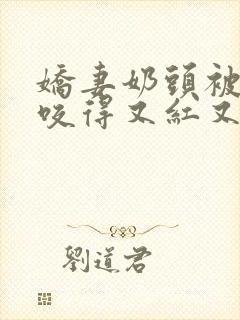 嬌妻奶頭被
咬得又紅又
劉道君